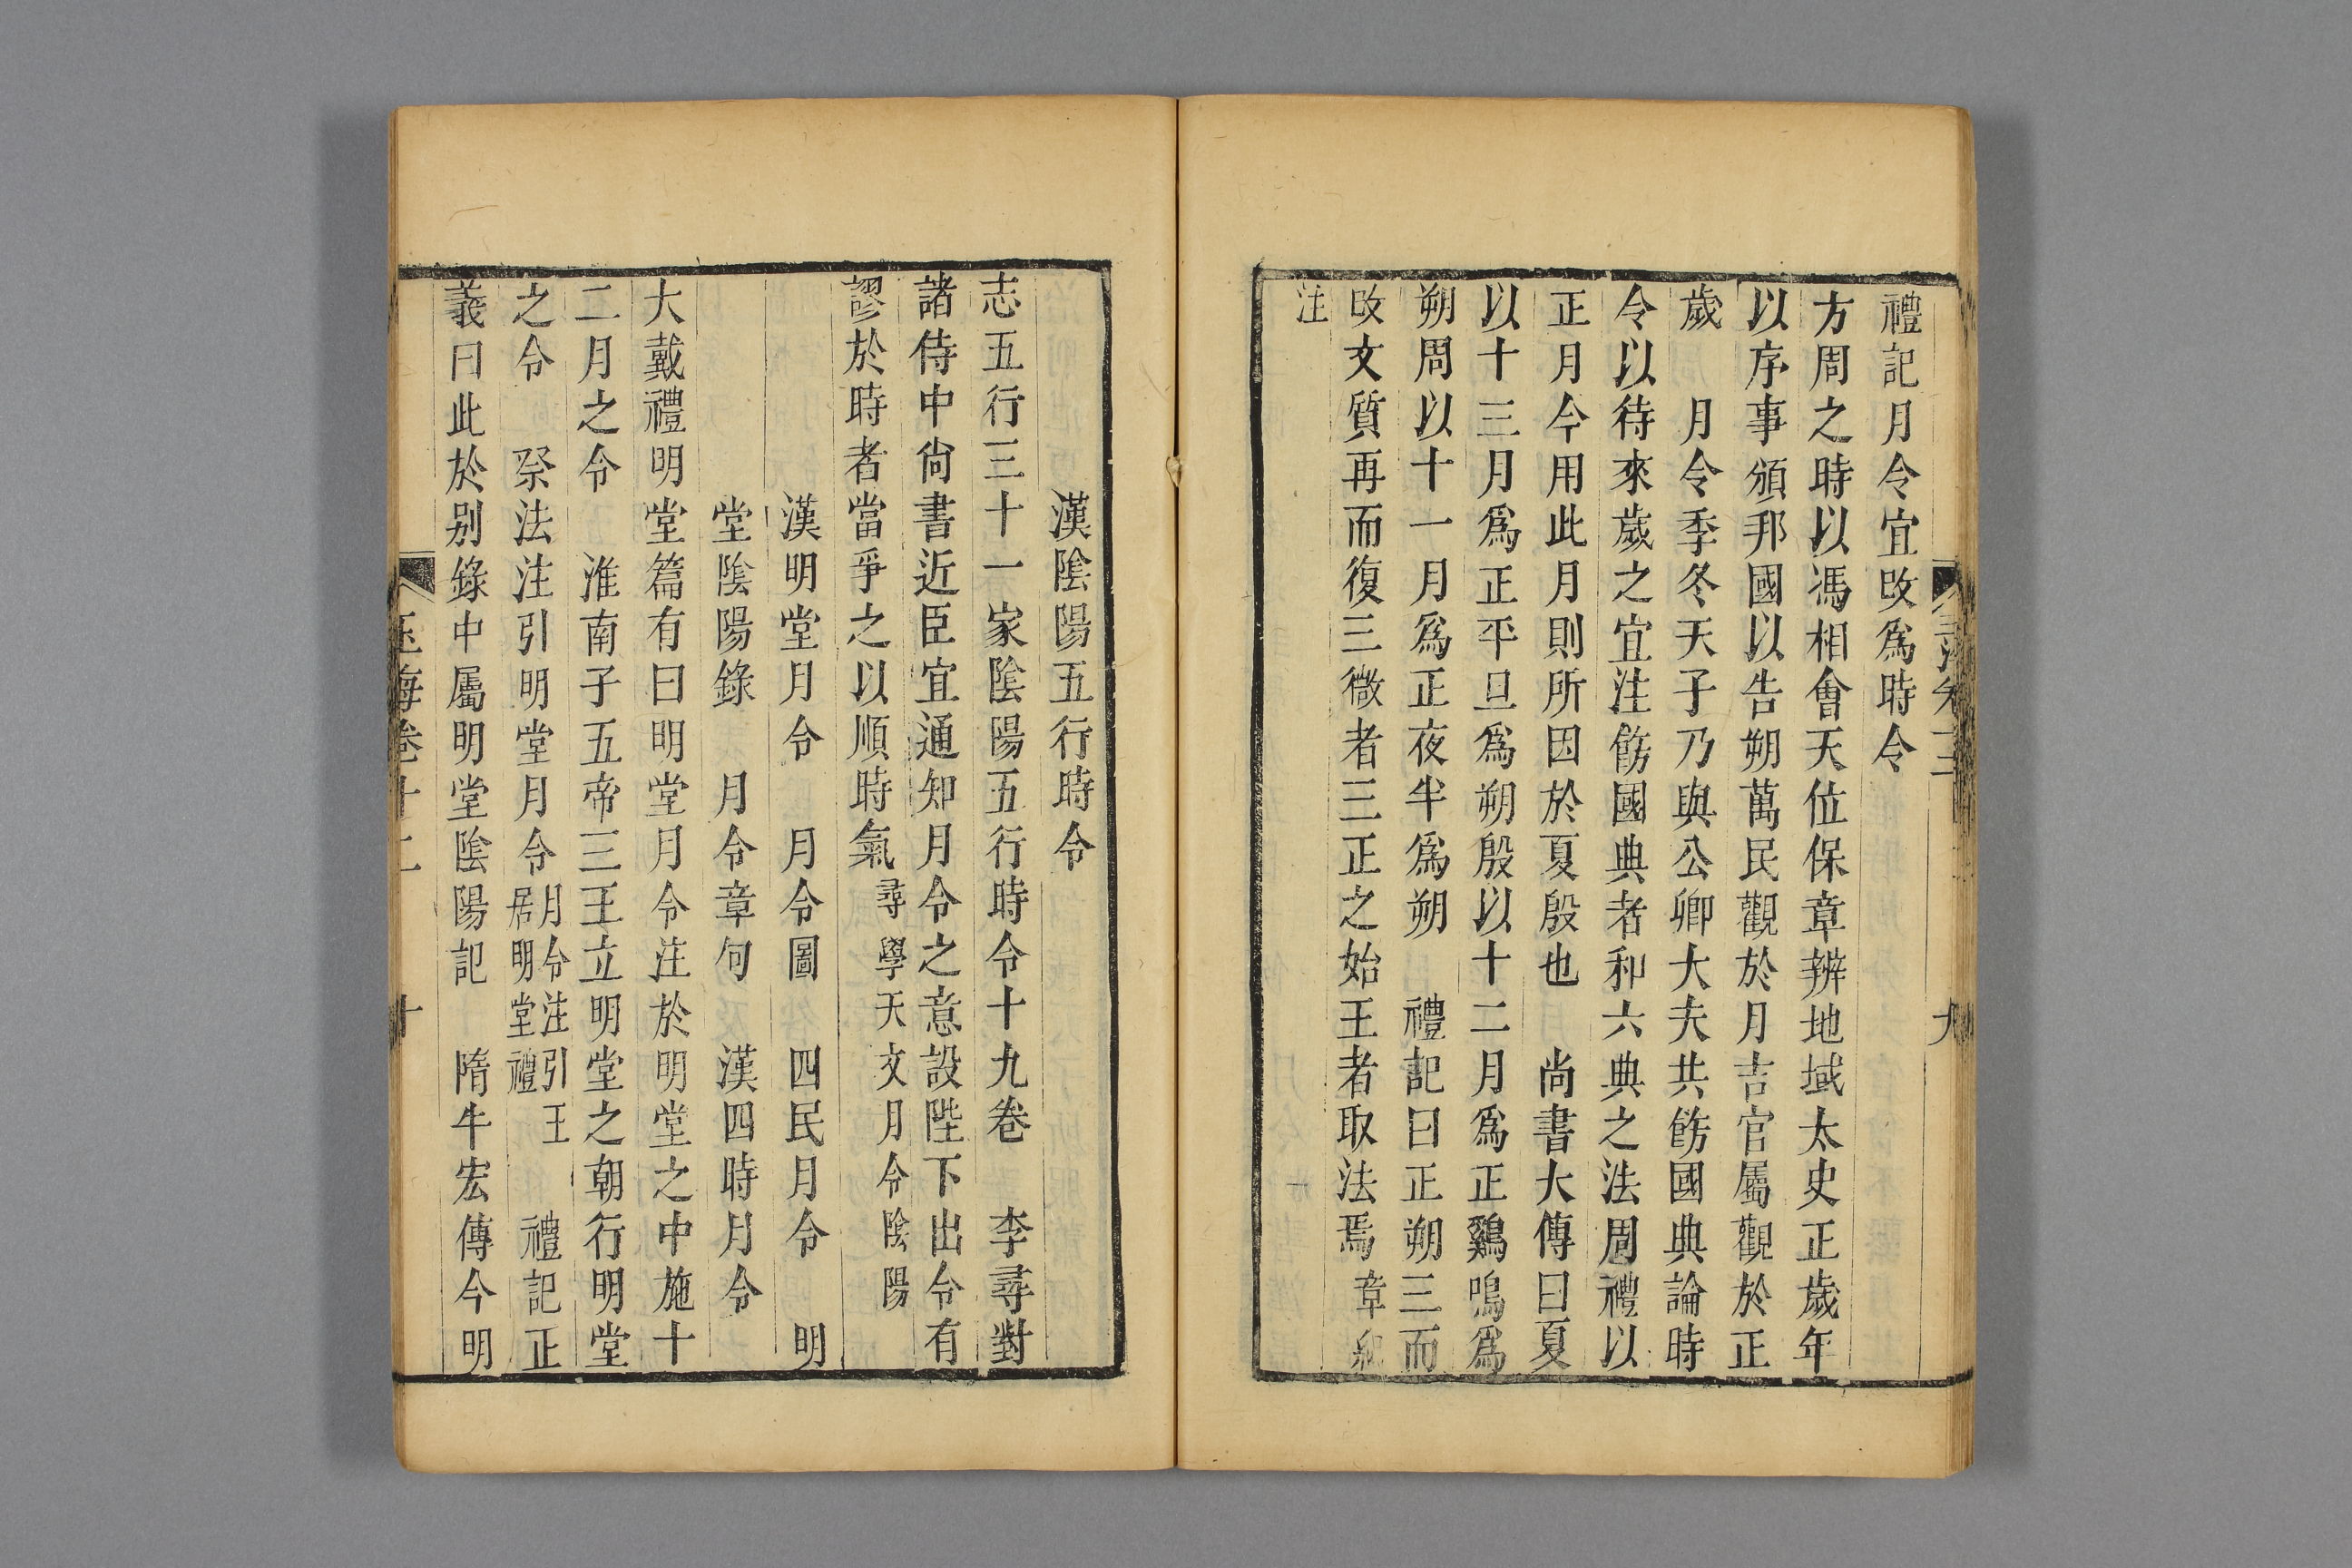 禮記月令宜改爲時令
方周之時以馮相會天位保章辨地域太史正歲年
以序事頒邦國以告朔萬民觀於月吉官屬觀於正
歲　月令季冬天子乃與公卿大夫共飭國典論時
令以待來歲之宜注飭國典者和六典之法周禮以
正月今用此月則所因於夏殷也　尚書大傳曰夏
以十三月爲正平旦爲朔殷以十二月爲正鷄鳴爲
朔周以十一月爲正夜半爲朔　禮記曰正朔三而
改文質再而復三微者三正之始王者取法焉章紀
注
漢陰陽五行時令
志五行三十一家陰陽五行時令十九卷　李尋對
諸侍中尚書近臣宜通知月令之意設陛下出令有
謬於時者當爭之以順時氣尋學天文月令陰陽
漢明堂月令　月令圖　四民月令　明
堂陰陽錄　月令章句　漢四時月令
大戴禮明堂篇有曰明堂月令注於明堂之中施十
二月之令　淮南子五帝三王立明堂之朝行明堂
之令　祭法注引明堂月令月令注引王居明堂禮　禮記正
義曰此於别錄中屬明堂陰陽記　隋牛宏傳今明
玉海卷十二　十